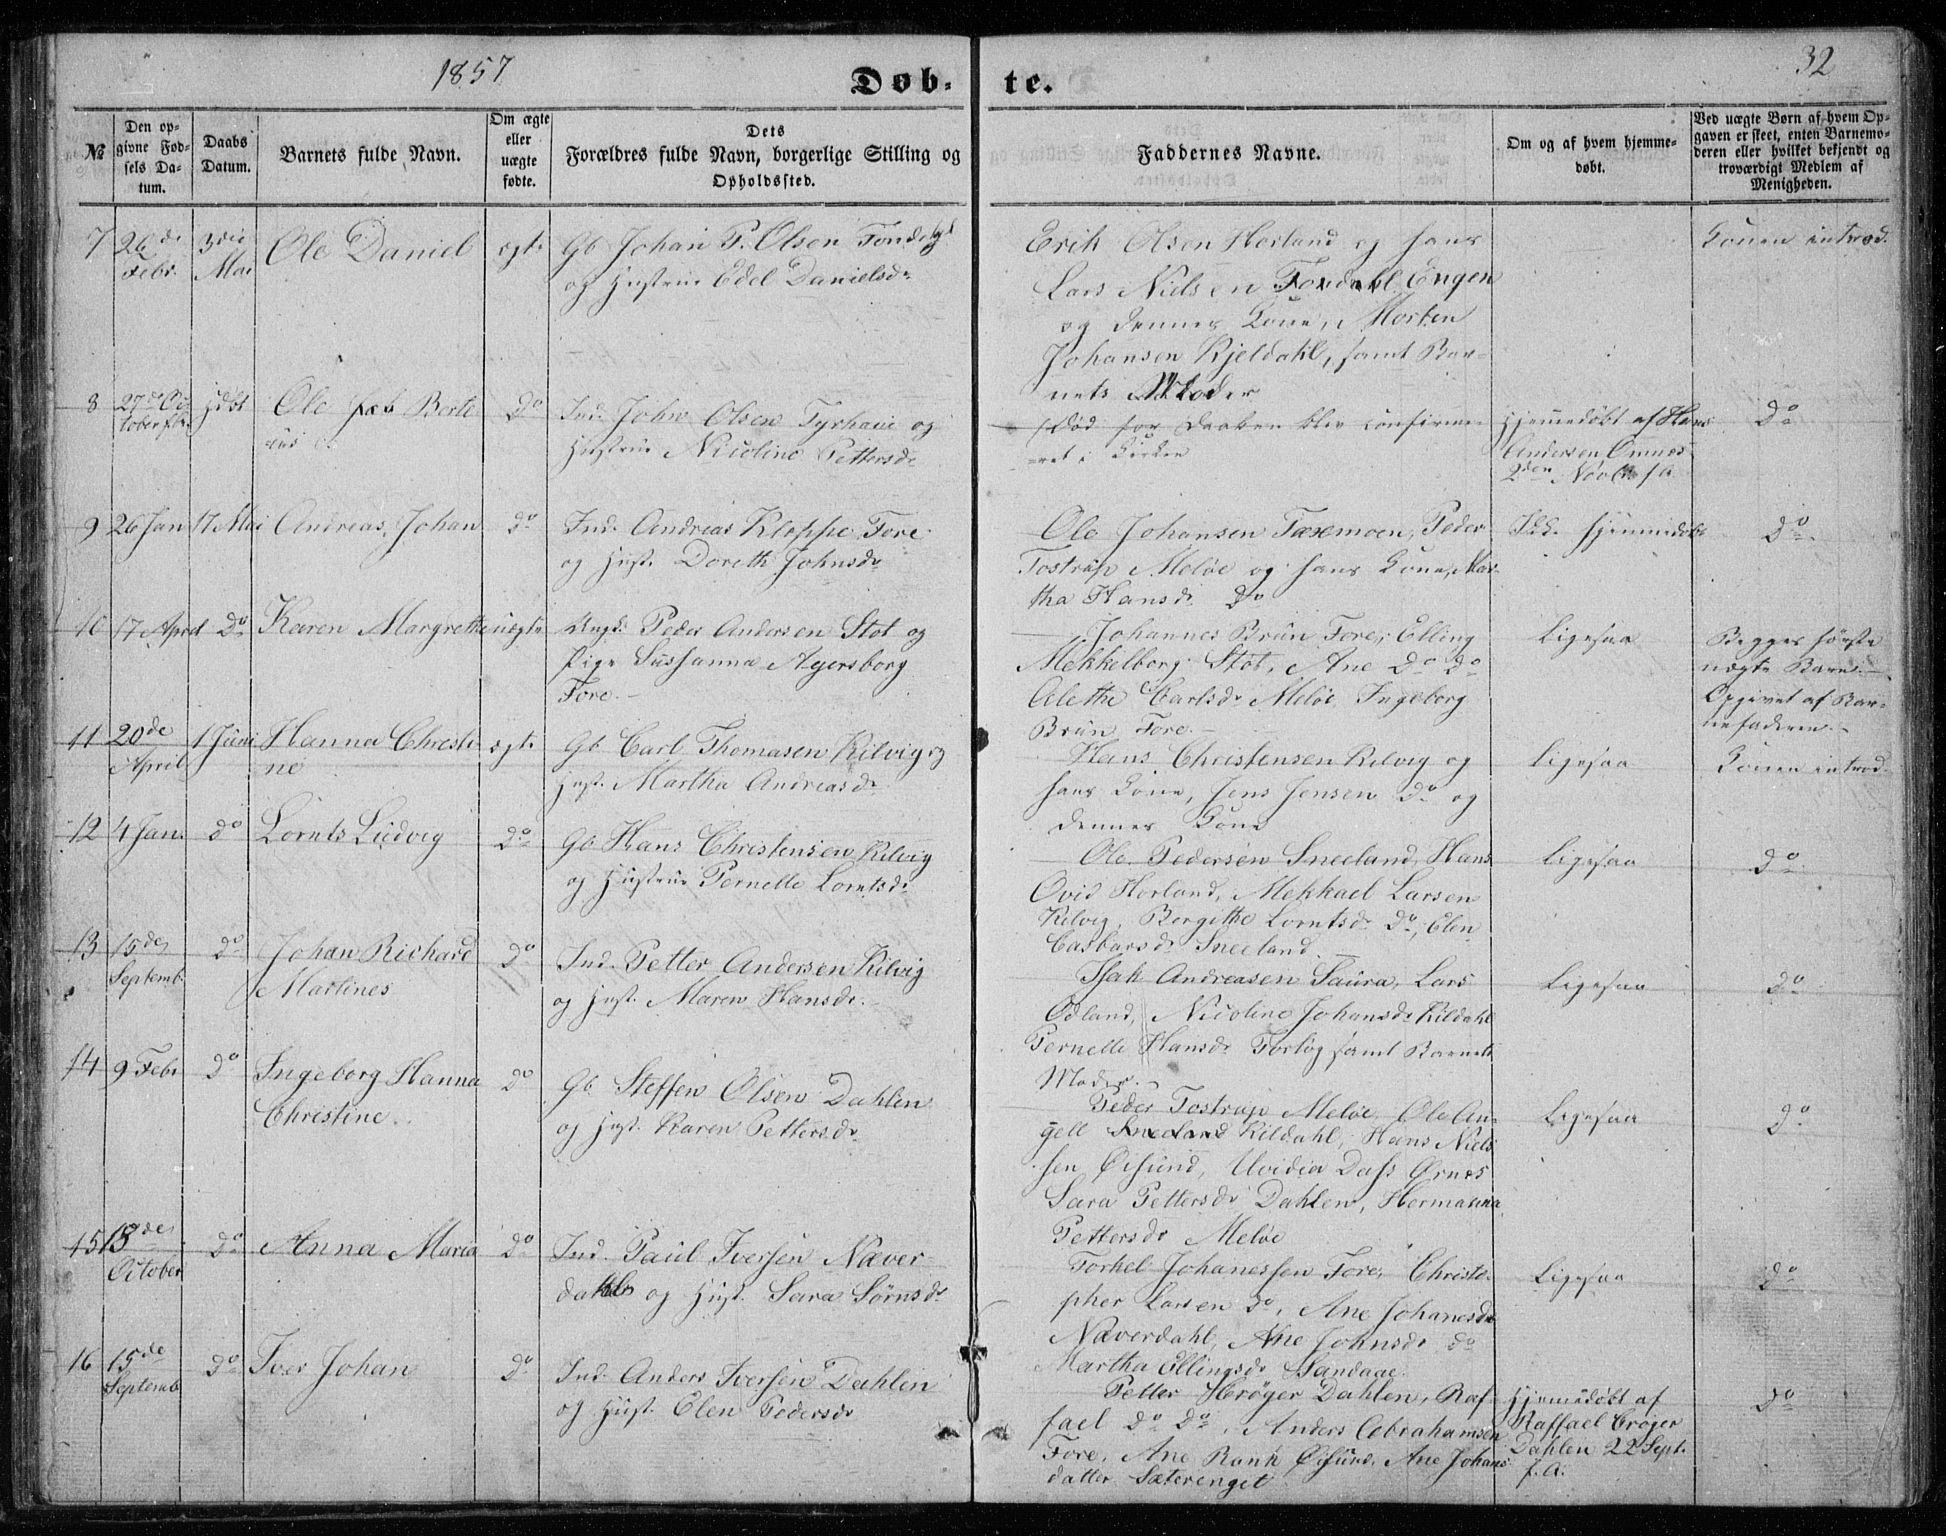 1857
32
Døb-
te.
№
Den op-
givne Fød-
sels Da-
tum.
Daabs
Datum.
Barnets fulde Navn.
Om ægte
eller
uægte
fødte.
Dets
Forældres fulde Navn, borgerlige Stilling og
Opholdssted.
Faddernes Navne.
Om og af hvem hjemme-
døbt.
Ved uægte Børn af hvem Op-
gaven er skeet, enten Barnemo-
deren eller hvilket bekjendt og
troværdigt Medlem af
Menigheden.
7
26de
Febr.
3die
Mai
Ole Daniel
egte
Gb Johan P. Olsen Fondahl
og Hustrue Edel Danielsdr
Erik Olsen Horland og hans
Lars Nielsen Fondahl Engen
og dennes Kone, Morten
Johansen Kjeldahl, samt Bar-
nets Moder
Konen introd.
8
27de Oc
tober f.A.
hjdbt
Ole Berte
us
Do
Ind. John Olsen Tyrhaui og
Hustrue Nicoline Pettersdr
(død før Daaben blev confirme-
ret i Kirken
Hjemmedøbt af Hans
Andersen Ornes
2den Novb. f A
Do
9
26 Jan
17 Mai
Andreas Johan
Do
Ind. Andreas Kloppe Fore
og Hust. Doreth Johnsdr
Ole Johansen Teremoen, Peder
Tostrup Meløe og hans Kone, Mar-
tha Hansdr Do
Ikk. hjemmedøbt
Do
10
17 April
Do
Karen Margrethe
uægte
Ungk. Peder Andersen Stot og
Pige Susanna Agersborg
Fore.
Johannes Brun Fore, Elling
Mekkelborg Stot, Ane Do Do
Alethe Carlsdr Meløe Ingeborg
Brun Fore
Ligesaa
Begges første
uægte Barn.
Opgivet af Bar-
nefaderen.
11
20de
April
1 Juni
Hanna Christi-
ne
egte
Gb Carl Thomasen Kilvig og
Hust. Martha Andreasdr
Hans Christensen Kilvig og
hans Kone, Jens Jensen Do og
dennes Kone
Ligesaa
Konen introd.
12
4 Jan.
Do
Lornts Ludvig
Do
Gb Hans Christensen Kilvig
og Hustrue Pernelle Lorntsdr
Ole Pedersen Sneeland, Hans
Ovid Horland, Mekkael Larsen
Kilvig, Bergithe Lorntsdr Do, Elen
Casbarsdr Sneeland
Ligesaa
Do
13
15de
Septemb.
Do
Johan Richard
Martines
Do
Ind. Petter Andersen Kilvig
og Hust. Maren Hansdr.
Isak Andreasen Saura, Lars
Ødland, Nicoline Johansdr Kildahl
Pernelle Hansdr Forløg samt Barnets
Moder.
Ligesaa
Do
14
9 Febr
Do
Ingeborg Hanna
Christine
Do
Gb Steffen Olsen Dahlen
og Hust. Karen Pettersdr
Peder Tostrup Meløe Ole An-
gell Sneeland Kildahl, Hans Niel-
sen Øisund, Uvidia Dass Ørnes
Sara Pettersdr Dahlen, Hermanna
Pettersdr Meløe
Ligesaa
Do
15
18de
October
Do
Anna Maria
Do
Ind. Paul Iversen Næver-
dahl og Hust. Sara Sørnsdr
Torkel Johanessen Fore, Christo-
pher Larsen Do, Ane Johanesdr
Næverdahl, Ane Johnsdr Do
Martha Ellingsdr Sandaae.
Ligesaa
Do
16
15de
Septemb
Do
Iver Johan
Do
Ind. Anders Iversen Dahlen
og Hust. Elen Pedersdr
Petter Krøger Dahlen, Raf-
fael Do Do, Anders Abrahamsen
Fore, Ane Rank Øisund, Ane Johans
datter Sæterenget
Hjemmedøbt af
Raffael Crøger
Dahlen 22 Sept.
f. A.
Do